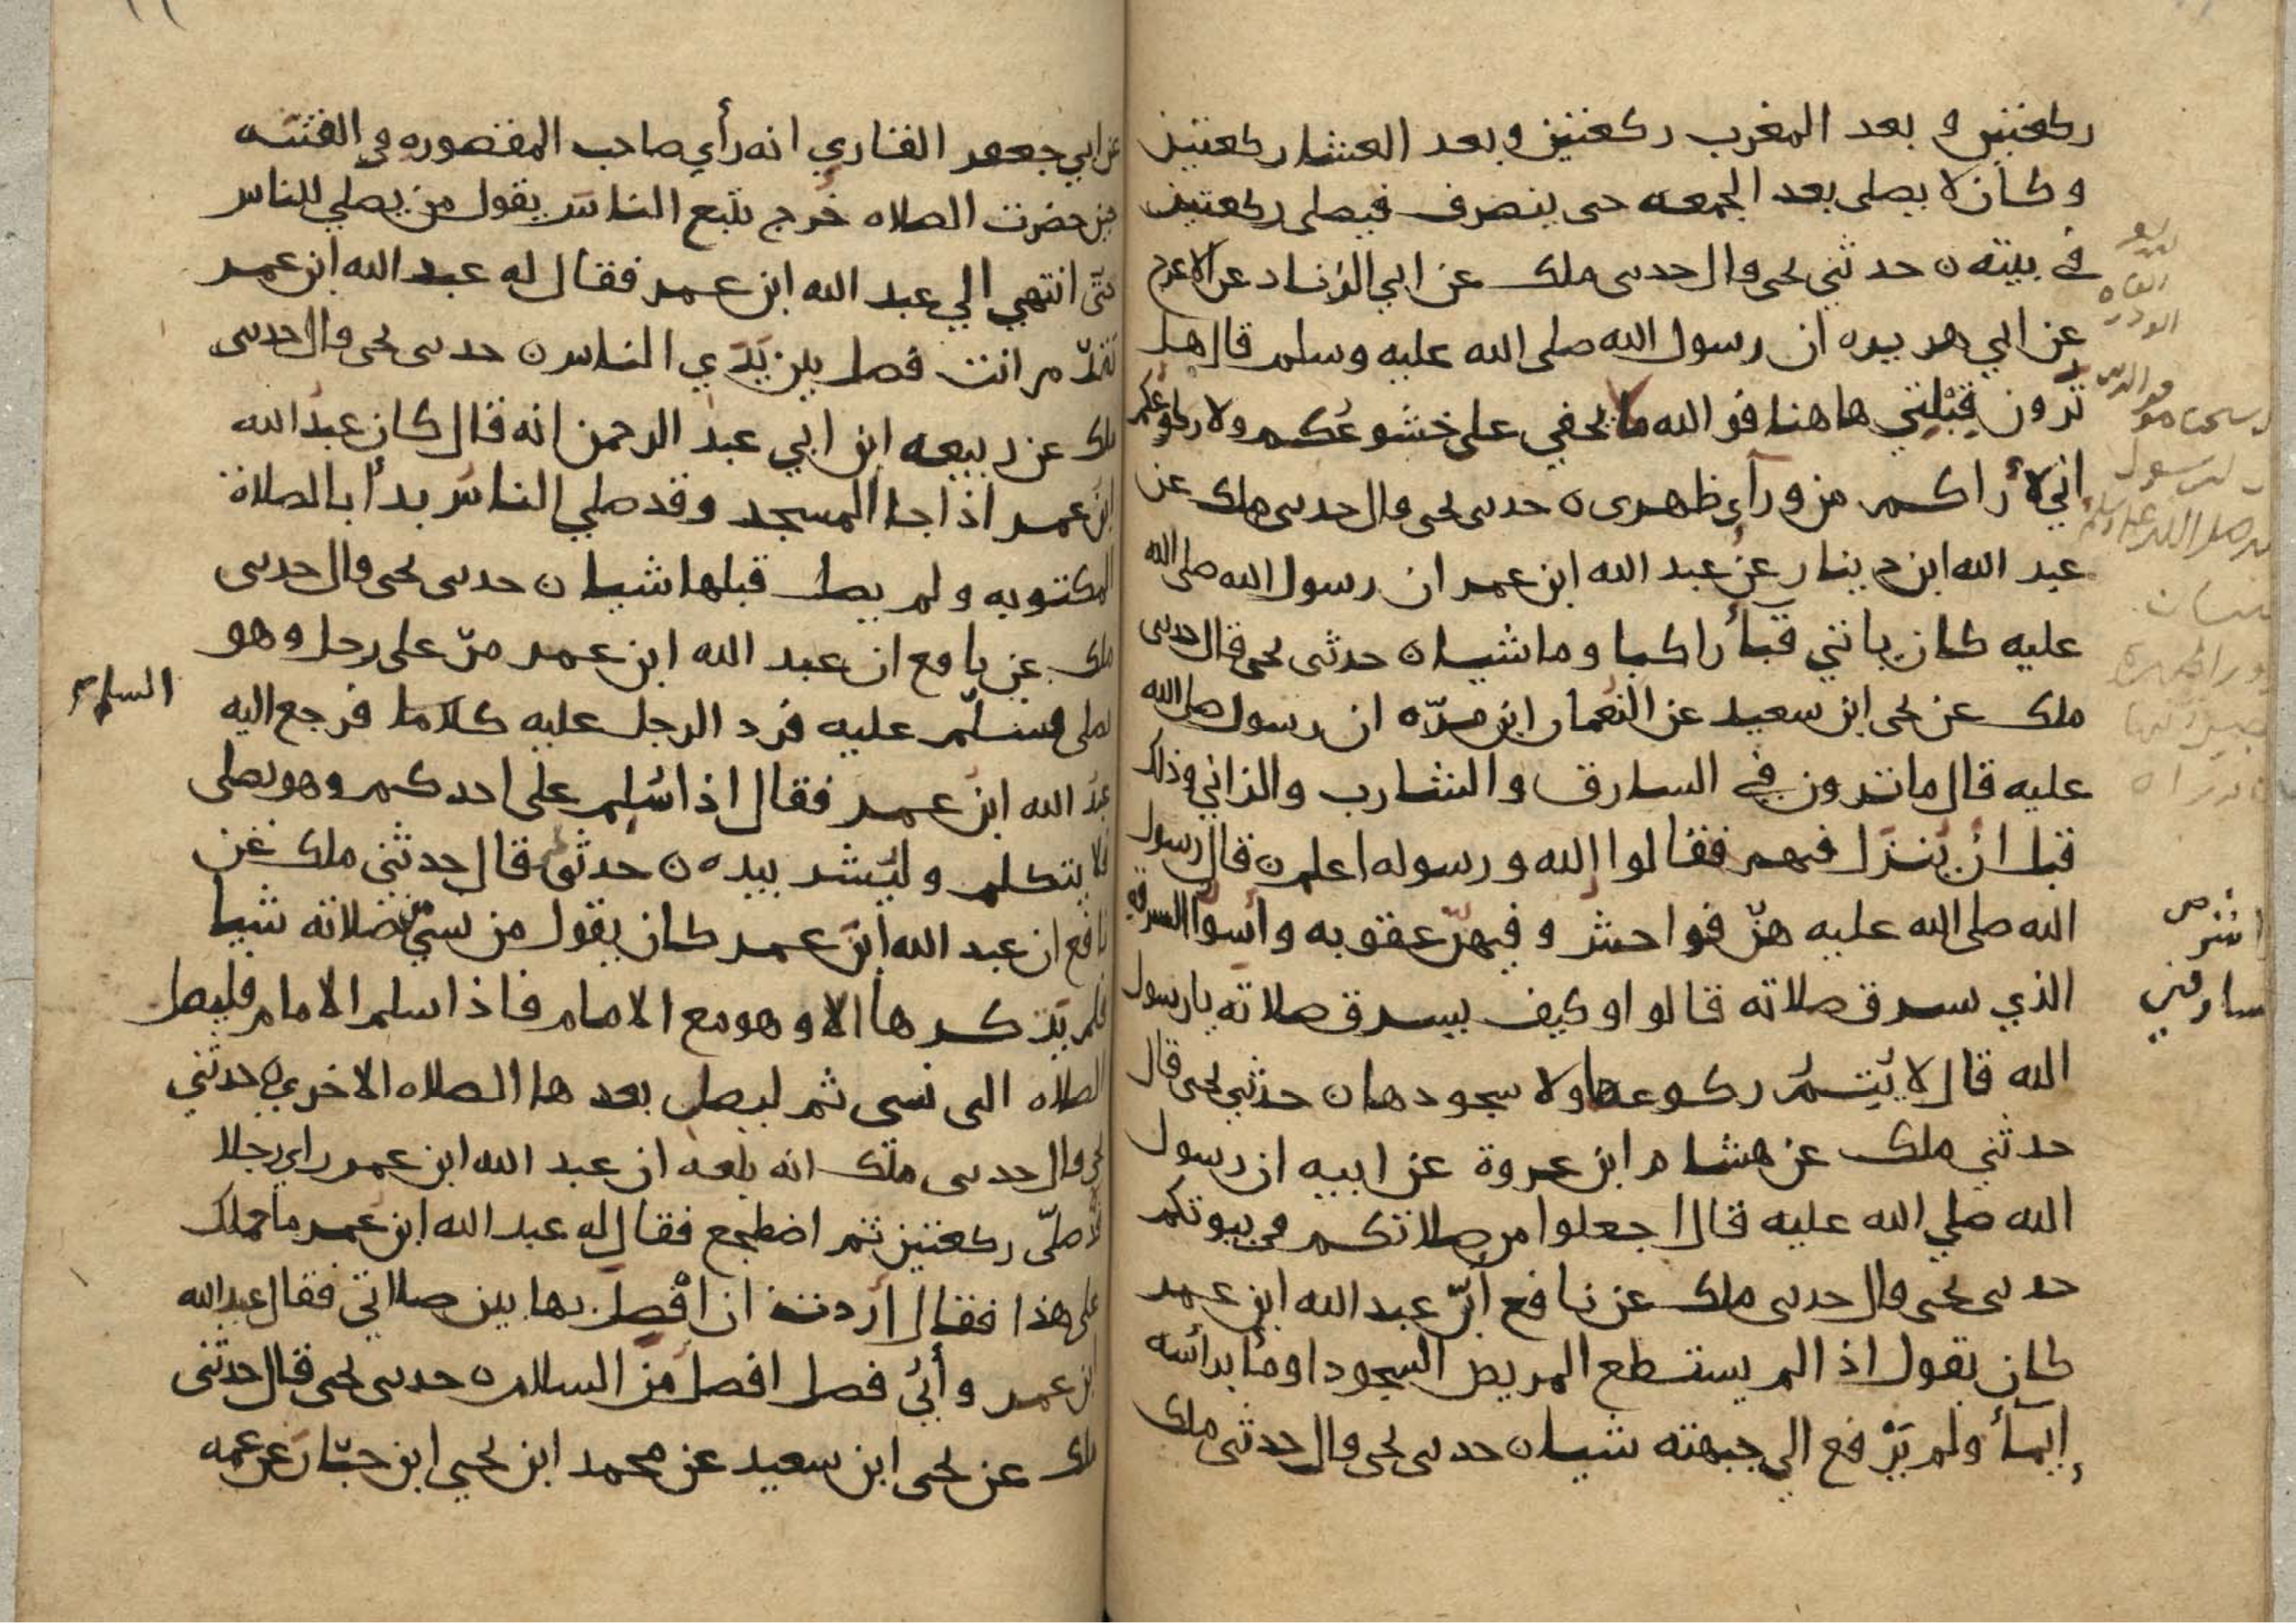 ركعتين و بعد المغرب ركعتين وبعد العشا ركعتين
وكان لا يصلي بعد الجمعه حتى ينصرف فيصلي ركعتين
في بيته ن حدثني يحيى قال حدثني ملك عن ابي الزناد عن الاعرج
عن ابي هريره ان رسول الله صلى الله عليه وسلم قال هل
تَرون قِبْلتي هاهنا فو الله ما يخفي علي خشوعُكم ولا ركوعكم
اني لأراكم من ورآي ظهري ن حدثني يحيى قال حدثني ملك عن
عبد الله ابن دينار عن عبد الله ابن عمر ان رسول الله صلى الله
عليه كان ياتي قبآ راكبا وماشيا ن حدثني يحيى قال حدثني
ملك عن يحيى ابن سعيد عن النعمان ابن مرّه ان رسول صلى الله
عليه قال ما ترون في السارق والشارب والزاني وذلك
قبل ان يَنزَل فيهم فقالوا الله و رسوله اعلم ن قال رسول
الله صلى الله عليه هنّ فواحش و فيهنّ عقوبه وأسوأ السرقه
الذي سرق صلاته قالوا وكيف يسرق صلاته يا رسول
الله قال لا يُتِمُّ ركوعها ولا سجودها ن حدثني يحيى قال
حدثني ملك عن هشام ابن عروة عن ابيه ان رسول
الله صلي الله عليه قال اجعلوا من صلاتكم في بيوتكم
حدثني يحيى قال حدثني ملك عن نافع أنّ عبد الله ابن عمر
كان يقول اذا لم يستطع المريض السجود اومأ برأسه
إيمآ ولم يَرْفع الي جبهته شيا ن حدثني يحيى قال حدثني ملك
عن ابي جعفر القاري انه رأي صاحب المقصوره في الفتنه
حين حضرت الصلاه خرج يتبع الناسَ يقول من يصلي للناس
حتّى انتهي الي عبد الله ابن عمر فقال له عبد الله ابن عمر
تقدّم انت فصل بين يَدَي الناس ن حدثني يحيى قال حدثني
ملك عن ربيعه ابن ابي عبد الرحمن انه قال كان عبد الله
ابن عمر اذا جا المسجد وقد صلي الناس بدأ بالصلاة
المكتوبه ولم يصل قبلها شيا ن حدثني يحيى قال حدثني
ملك عن نافع ان عبد الله ابن عمر مرّ على رجل وهو
يصلي فسلّم عليه فرد الرجل عليه كلاما فرجع اليه
عبد الله ابن عمر فقال اذا سُلِم على احدكم وهو يصلي
فلا يتكلم وليُشر بيده ن حدثني قال حدثني ملك عن
نافع ان عبد الله ابن عمر كان يقول من نسي صلاته شيا
فلم يَذكرها الا وهو مع الامام فاذا سلم الامام فليصل
الصلاه التي نسي ثم ليصل بعدها الصلاه الاخري ن حدثني
يحيى قال حدثني ملك انه بلغه ان عبد الله ابن عمر راي رجلا
صلّى ركعتين ثم اضطجع فقال له عبد الله ابن عمر ما حملك
على هذا فقال اردت ان افْصل بها بين صلاتي فقال عبد الله
ابن عمر وأيُّ فصل افصل من السلام ن حدثني يحيى قال حدثني
ملك عن يحيى ابن سعيد عن محمد ابن يحيي ابن حبّان عن عمه
السلام